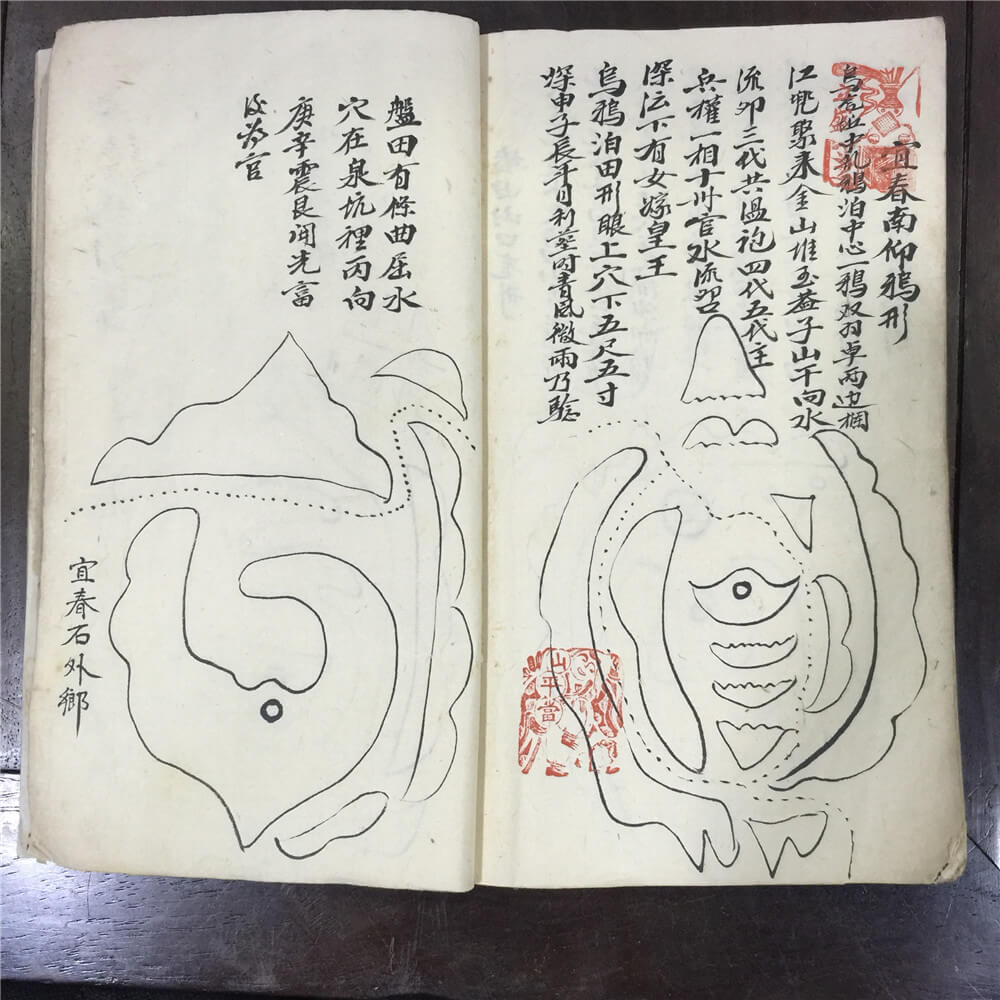 宜春南仰鴉形
烏石坵中孔鴉泊中心一鴉双羽卓兩边攔
江兜聚来金山堆玉益子山干向水
流卯三代共温袍四代五代主
兵權一相十州官水流
深坛下有女嫁皇王
烏鴉泊田形眼上穴下五尺五寸
深申子辰年月利塟时青風微雨乃驗
盤田有條曲屈水
穴在泉坑裡丙向
庚辛震艮開光富
官
宜春石外鄉
山平當